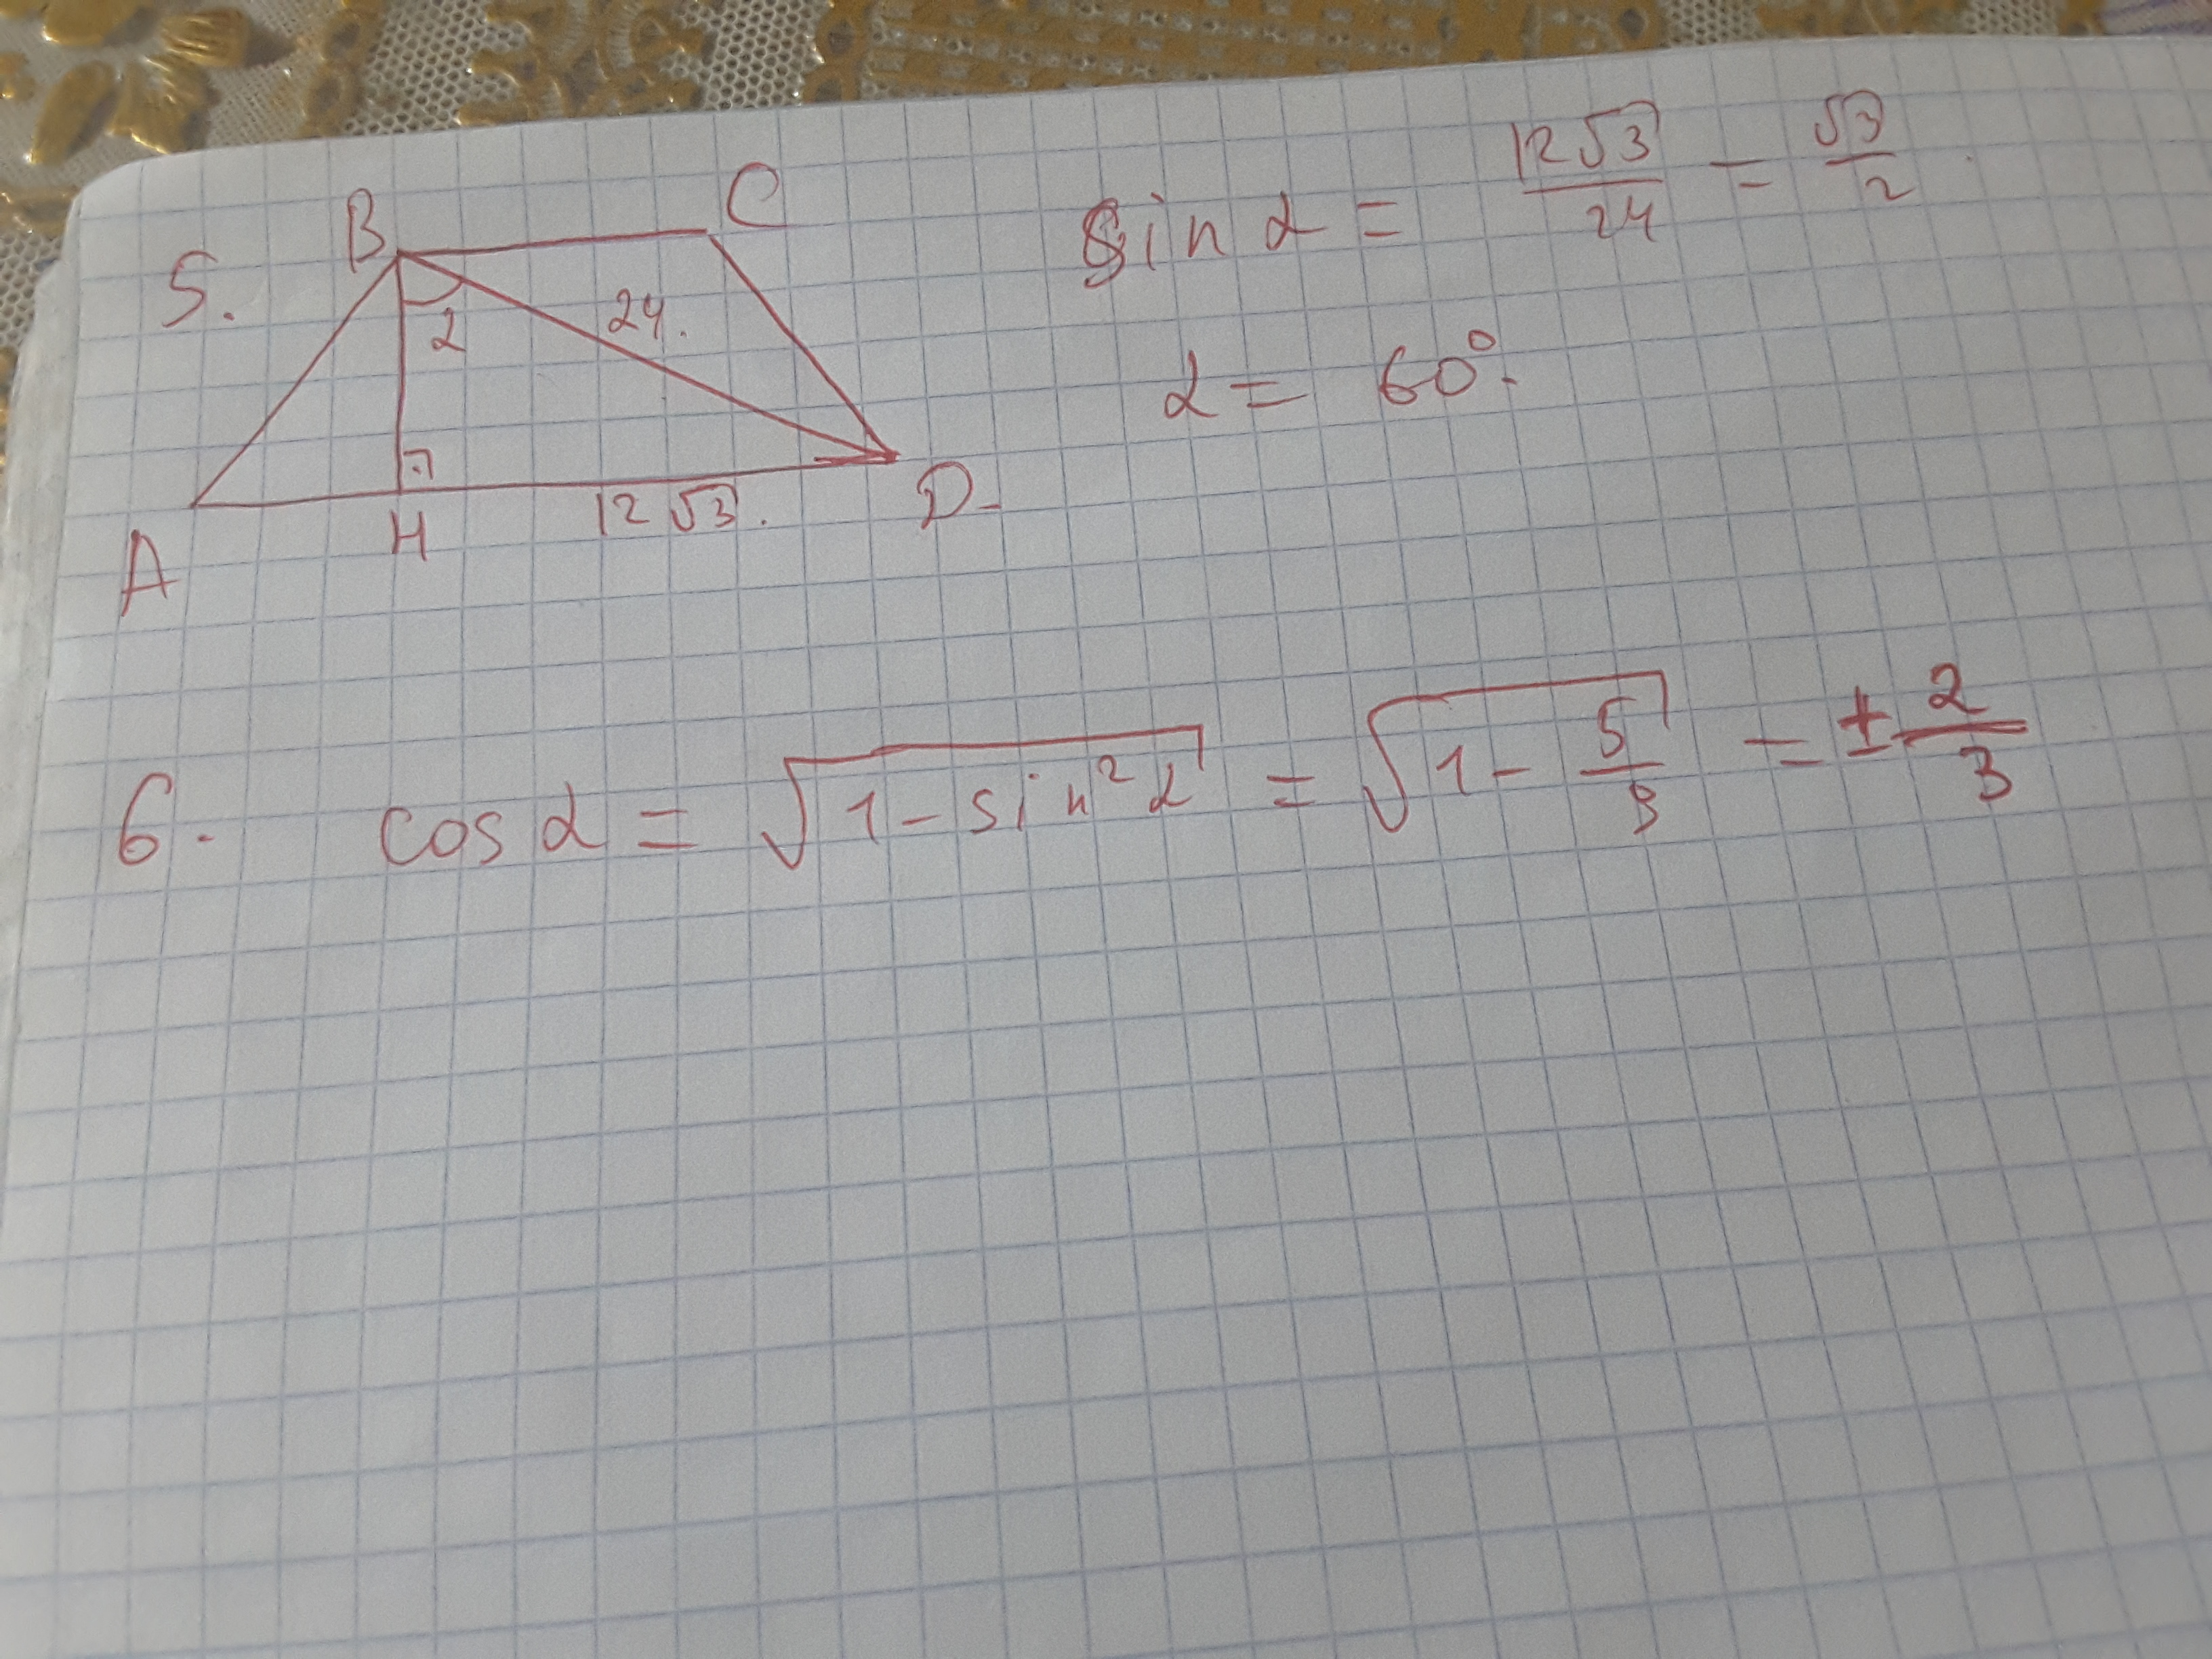 5.
B
C
2
24.
A
H
12√3.
D
sin α = 12√3/24 = √3/2
α = 60°.
6. cos α = √(1 - sin²α) = √(1 - 5/9) = ± 2/3